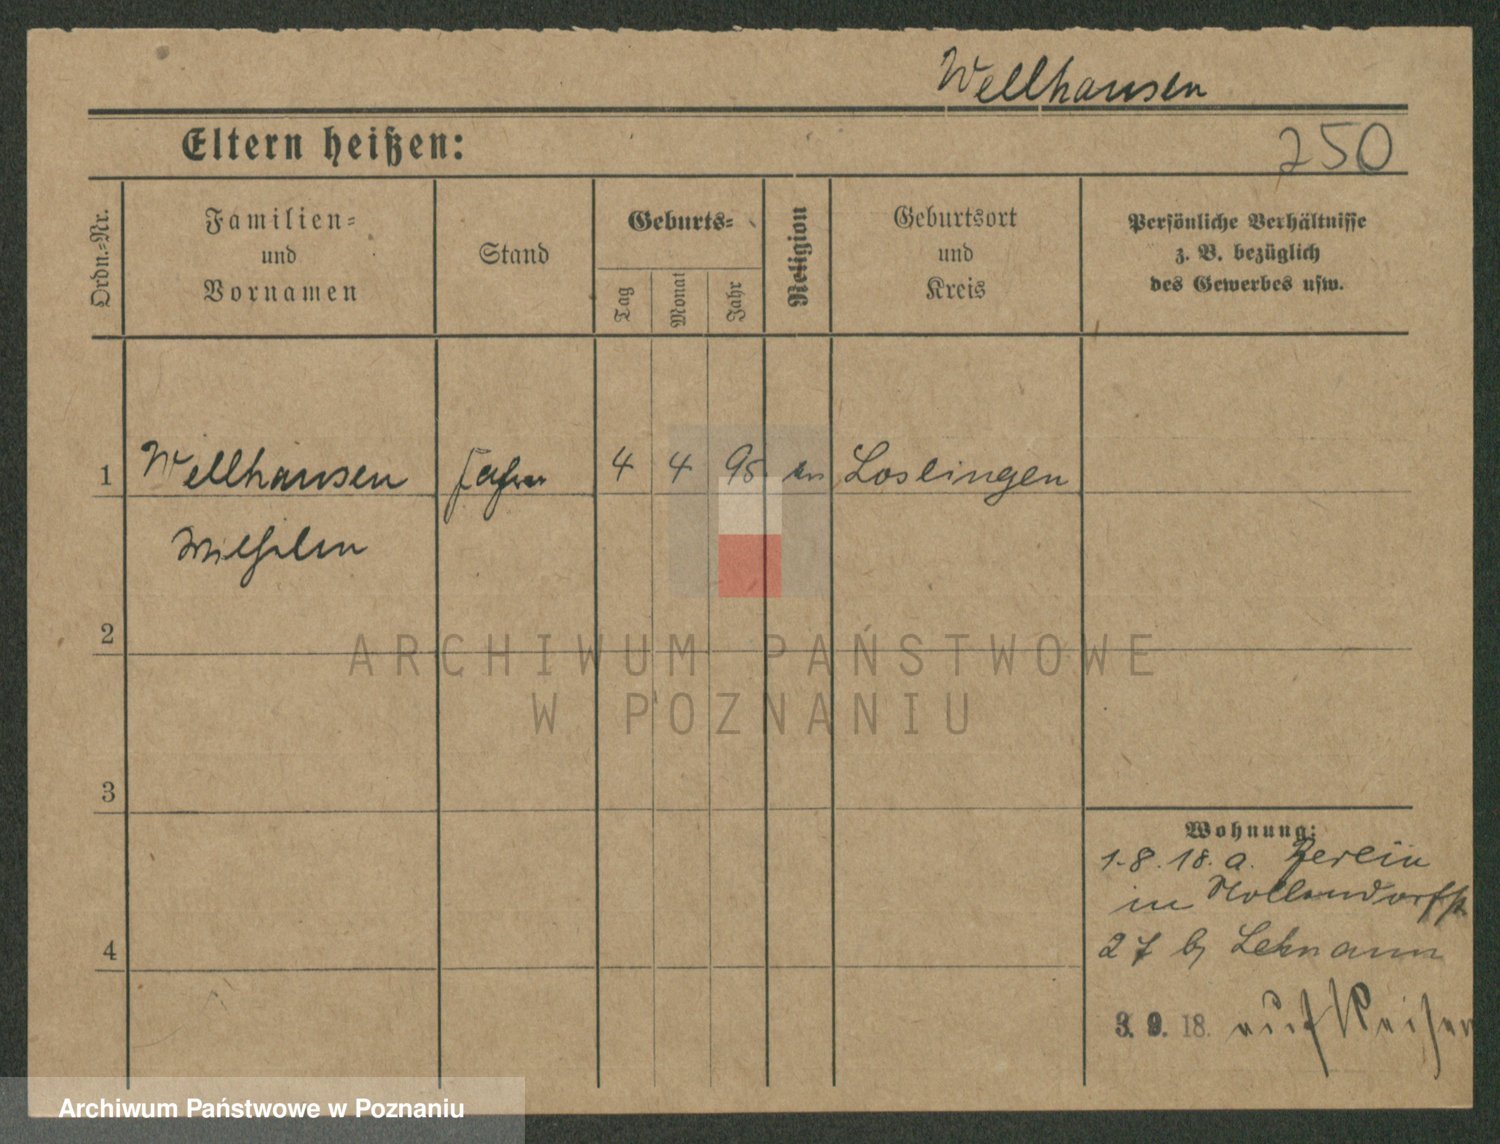 Wellhausen
Eltern heißen:
250
Ordn.-Nr.
Familien-
und
Vornamen
Stand
Geburts-
Tag
Monat
Jahr
Religion
Geburtsort
und
Kreis
Persönliche Verhältnisse
z. B. bezüglich
des Gewerbes usw.
1 Wellhausen 4 4 95 Loslingen
Wilhelm
2
ARCHIWUM PAŃSTWOWE
W POZNANIU
3
Wohnung:
1.8.18. a. Berlin
in
4
27 b Lehmann
3. 9. 18. auf Reisen
Archiwum Państwowe w Poznaniu